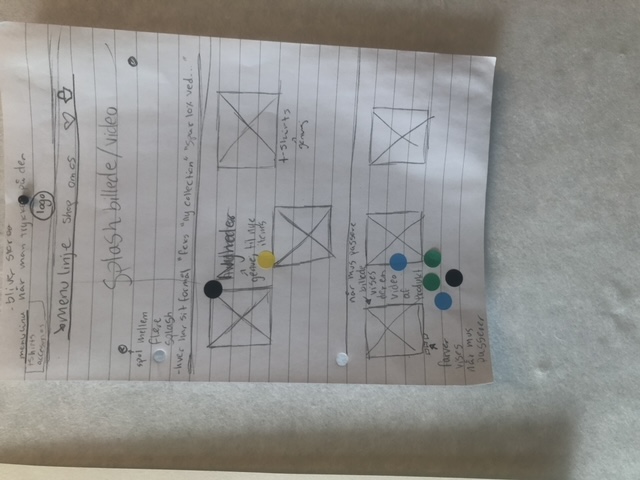 - bliver større
når man trykker på den
menu linie
t-shirts
accesories
logo
menu linje shop om os
Splash billede/video
spol mellem
flere
splash
- hver har sit formål "feks "ny collection" "spar 10x ved..."
Nyheder
genvej til nye
items
t-shirts
genvej
når mus passere
billede
vises
der en
video
af
produkt
farver
vises
når mus
passerer